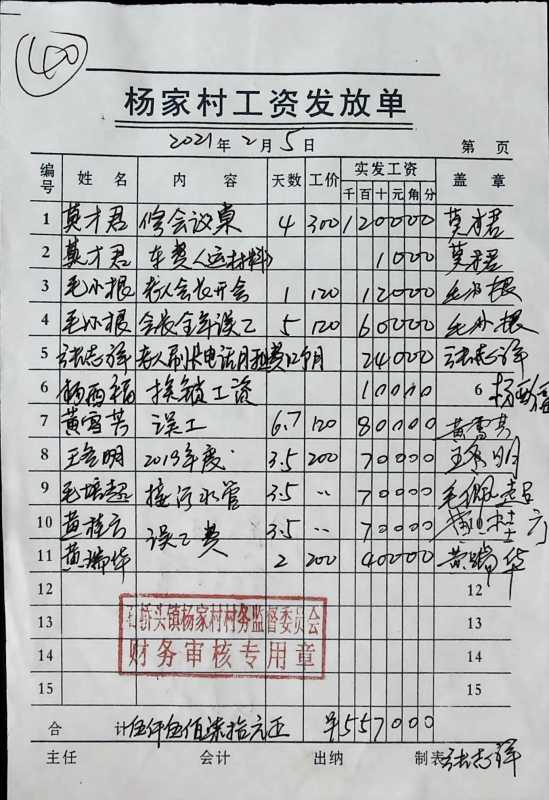 400
杨家村工资发放单
2021年2月5日 第 页
编号 姓名 内容 天数 工价 实发工资 盖章
千 百 十 元 角 分
1 莫才君 修会议桌 4 300 120000 莫才君
2 莫才君 车费(运材料) 1000 莫才君
3 毛小根 老人会长开会 1 120 12000 毛小根
4 毛小根 会长全年误工 5 120 60000 毛小根
5 张志祥 老人刷卡电话月租费12个月 24000 张志祥
6 杨西福 换锁工资 10000 6 杨西福
7 黄雪芳 误工 6.7 120 80000 黄雪芳
8 王金明 2019年度 3.5 200 70000 王金明
9 毛培超 接污水管 3.5 〃 70000 毛
10 黄桂云 误工费 3.5 70000 黄桂云
11 黄瑞华 2 200 40000 黄瑞华
12 12
13 13
14 14
15 15
桥头镇杨家村村务监督委员会
财务审核专用章
合计 伍仟伍佰柒拾元正 ¥557000
主任 会计 出纳 制表 张志祥